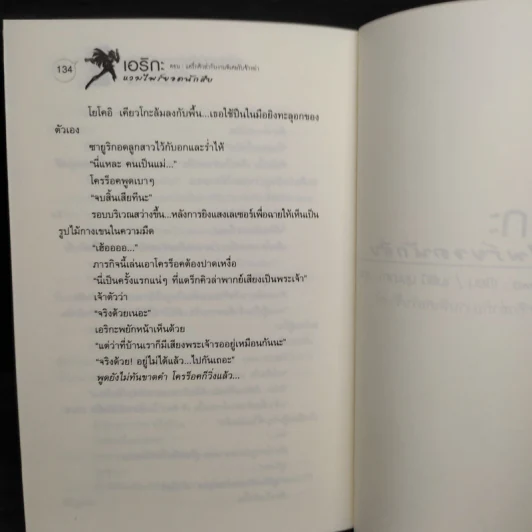 134
เอริกะ
ตอน : เสร็จศึก
แวมไพร์ยอดนักสืบ
โยโคอิ เคียวโกะล้มลงกับพื้น...เธอใช้ปืนในมือยิงทะลุอกของ
ตัวเอง
ซายูริกอดลูกสาวไว้กับอกและร่ำไห้
“นี่แหละ คนเป็นแม่...”
โครร็อคพูดเบาๆ
“จบสิ้นเสียทีนะ”
รอบบริเวณสว่างขึ้น...หลังการยิงแสงเลเซอร์เพื่อฉายให้เห็นเป็น
รูปไม้กางเขนในความมืด
“เฮ้ออออ...”
ภารกิจนี้เล่นเอาโครร็อคต้องปาดเหงื่อ
“นี่เป็นครั้งแรกแน่ๆ ที่แดร็กคิวล่าพากย์เสียงเป็นพระเจ้า”
เจ้าตัวว่า
“จริงด้วยเนอะ”
เอริกะพยักหน้าเห็นด้วย
“แต่ว่าที่บ้านเราก็มีเสียงพระเจ้ารออยู่เหมือนกันนะ”
“จริงด้วย! อยู่ไม่ได้แล้ว...ไปกันเถอะ”
พูดยังไม่ทันขาดคำ โครร็อคก็วิ่งแล้ว...